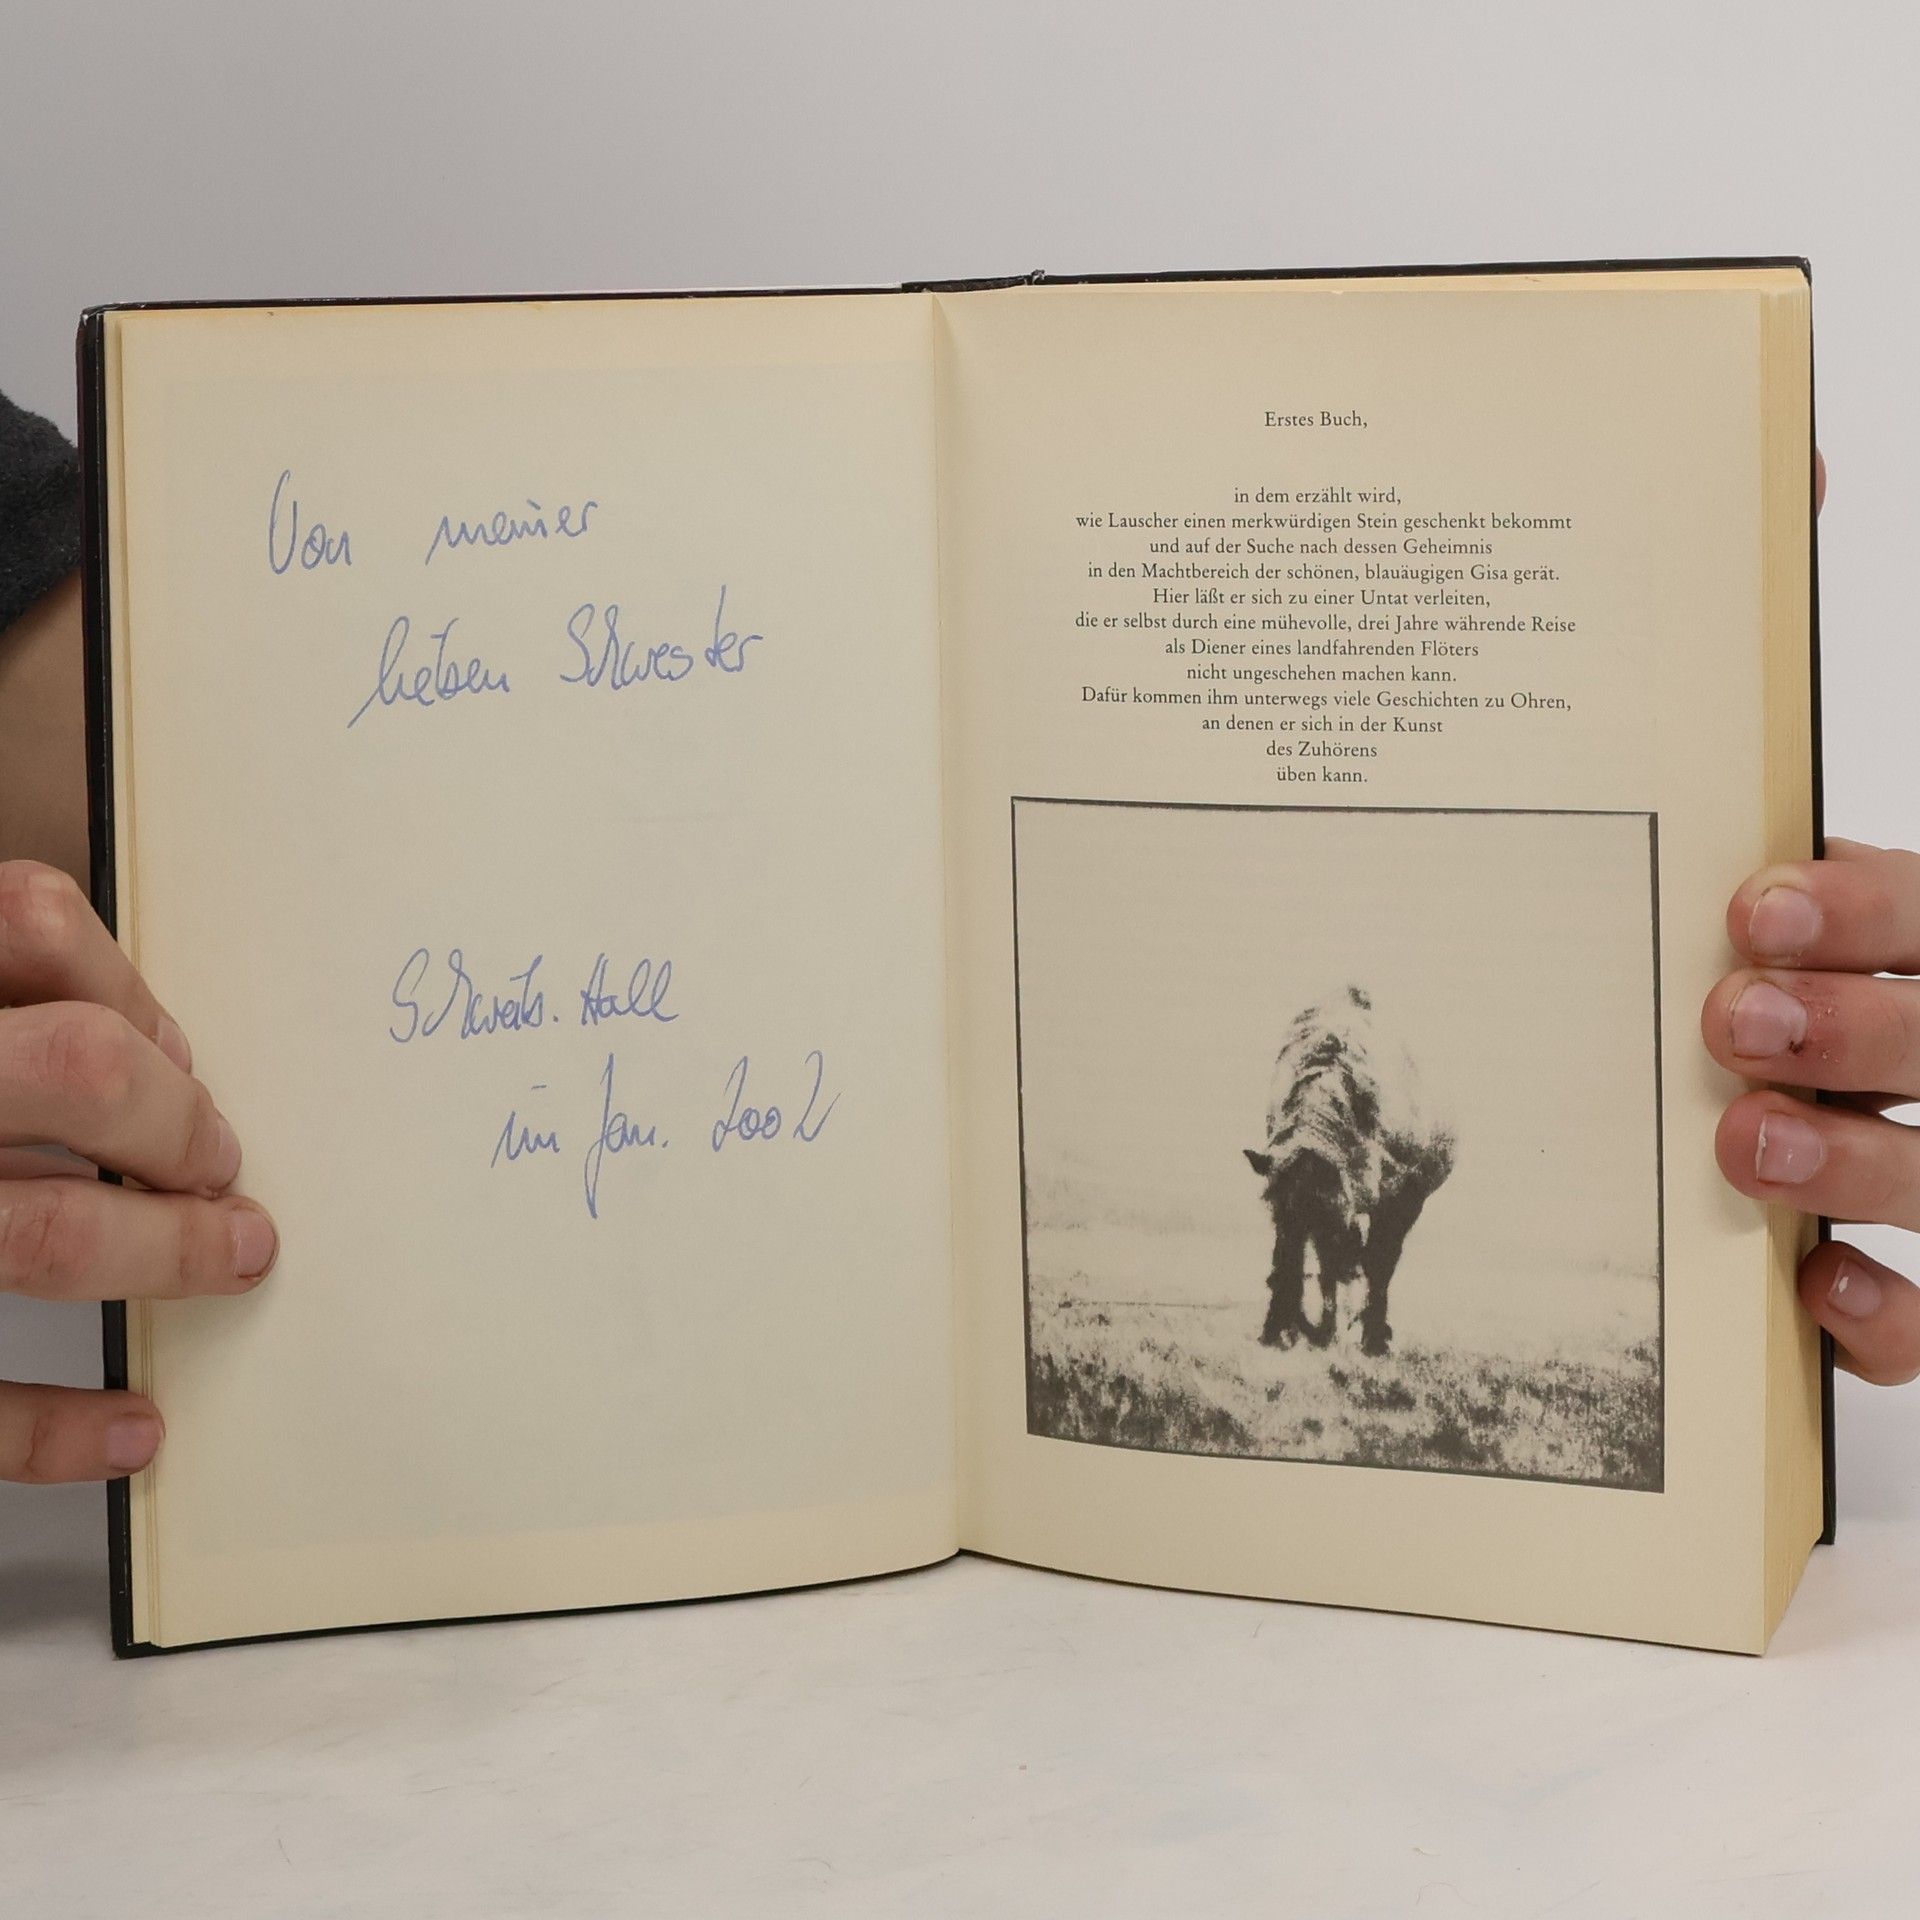 Von meiner
lieben Schwester
Schwäb. Hall
im Jan. 2002
Erstes Buch,
in dem erzählt wird,
wie Lauscher einen merkwürdigen Stein geschenkt bekommt
und auf der Suche nach dessen Geheimnis
in den Machtbereich der schönen, blauäugigen Gisa gerät.
Hier läßt er sich zu einer Untat verleiten,
die er selbst durch eine mühevolle, drei Jahre währende Reise
als Diener eines landfahrenden Flöters
nicht ungeschehen machen kann.
Dafür kommen ihm unterwegs viele Geschichten zu Ohren,
an denen er sich in der Kunst
des Zuhörens
üben kann.